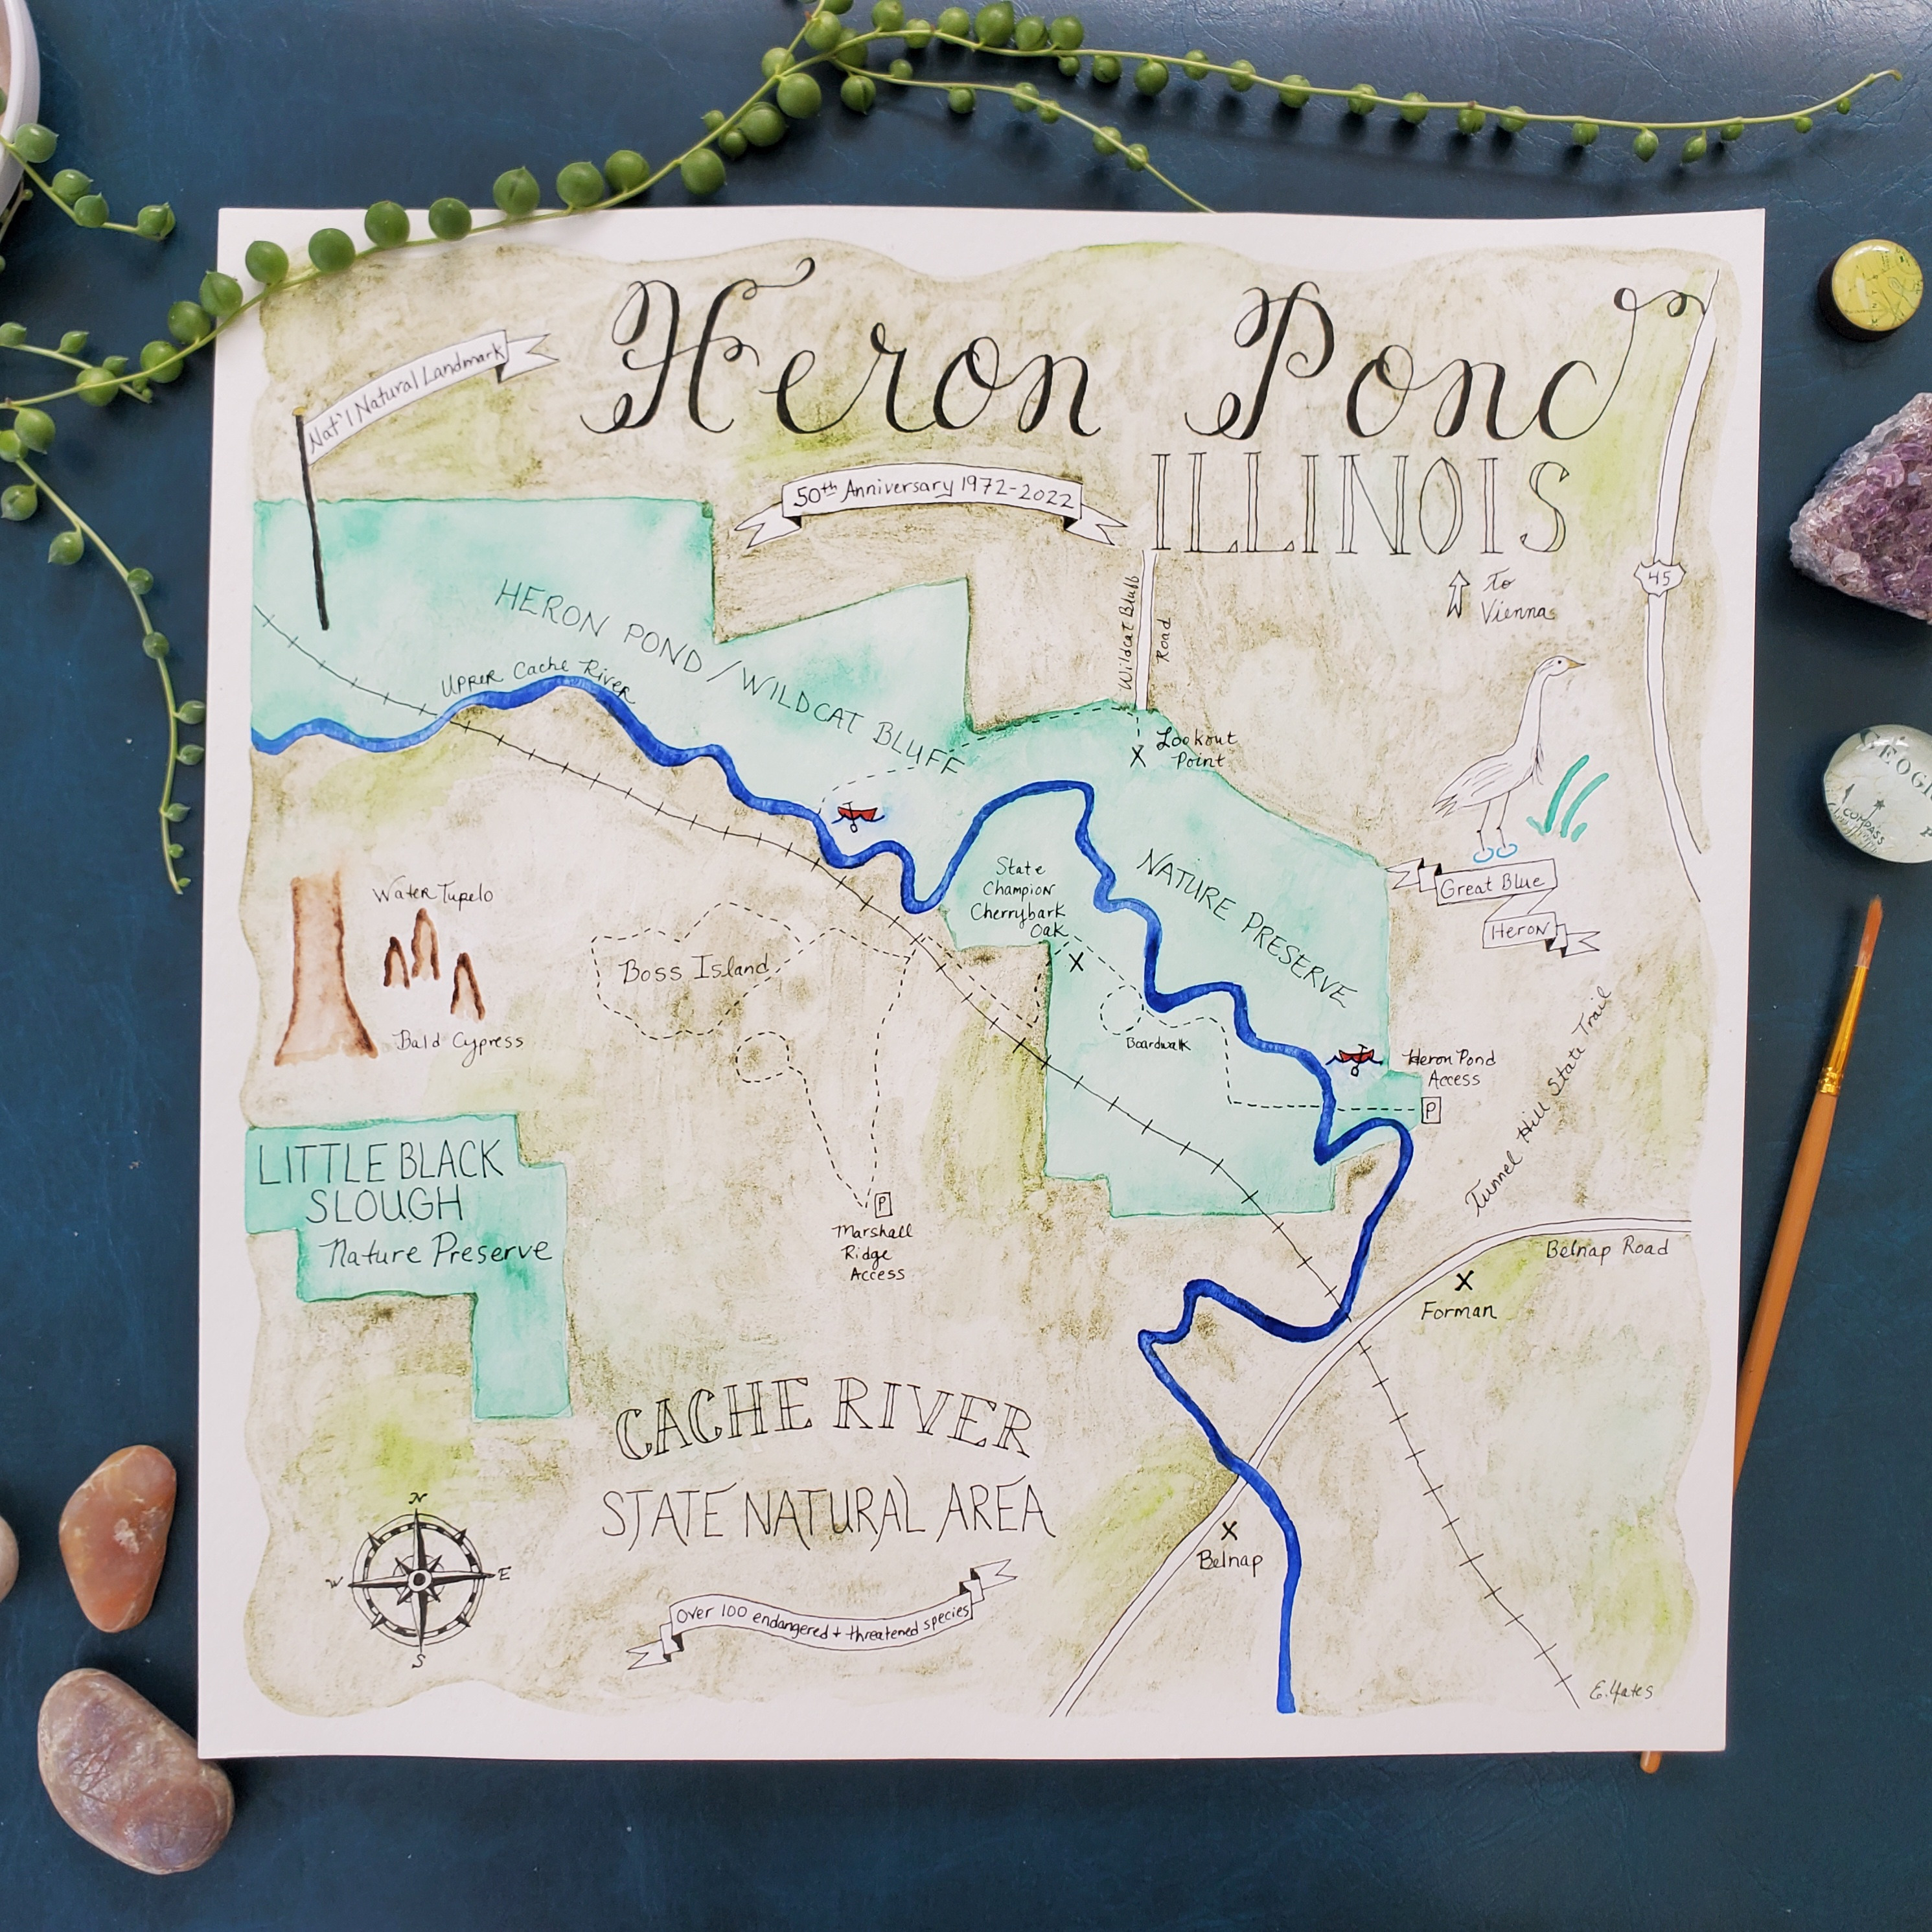 Heron Pond
ILLINOIS
Nat'l Natural Landmark
50th Anniversary 1972-2022
45
To
Vienna
Wildcat Bluff
Road
HERON POND / WILDCAT BLUFF
Upper Cache River
Lookout
Point
State
Champion
Cherrybark
Oak
NATURE PRESERVE
Great Blue
Heron
Water Tupelo
Bald Cypress
Boss Island
Boardwalk
Heron Pond
Access
P
Tunnel Hill State Trail
LITTLE BLACK
SLOUGH
Nature Preserve
P
Marshall
Ridge
Access
Belnap Road
Forman
CACHE RIVER
STATE NATURAL AREA
Belnap
N
W
E
S
Over 100 endangered + threatened species
E. Yates
COMPASS